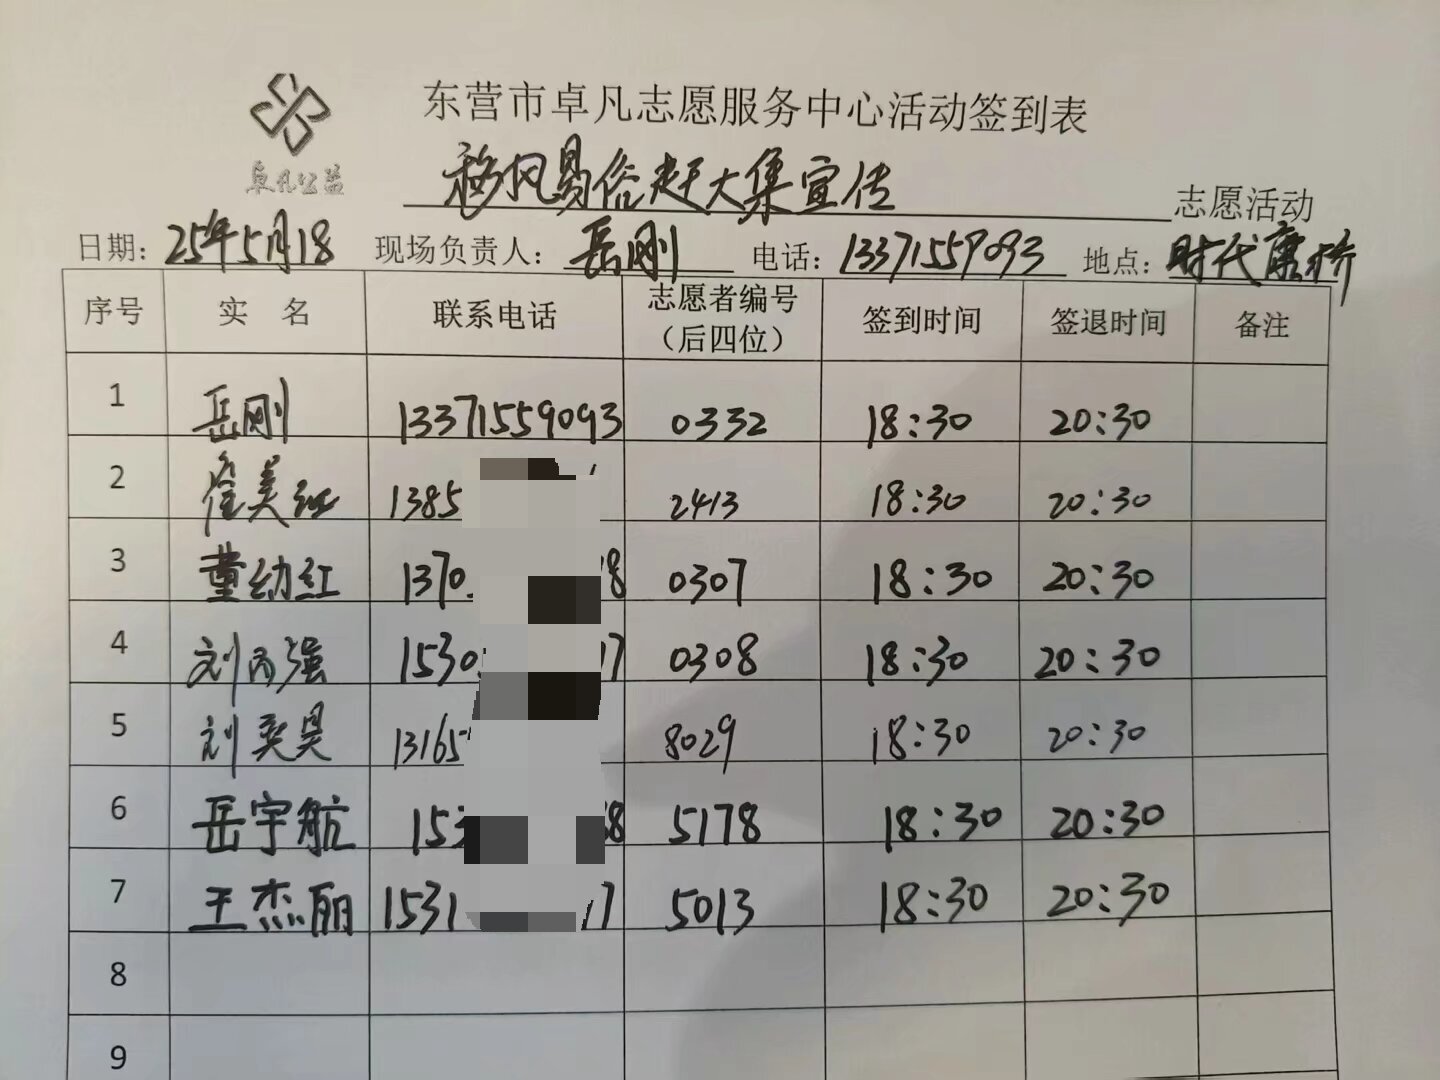 东营市卓凡志愿服务中心活动签到表
卓凡公益
移风易俗赶大集宣传 志愿活动
日期：25年5月18 现场负责人：岳刚 电话：13371559093 地点：时代康桥
序号 实 名 联系电话 志愿者编号（后四位） 签到时间 签退时间 备注
1 岳刚 13371559093 0332 18:30 20:30
2 崔美红 1385 2413 18:30 20:30
3 董幼红 1370 8 0307 18:30 20:30
4 刘丙强 1530 17 0308 18:30 20:30
5 刘奕昊 13165 8029 18:30 20:30
6 岳宇航 153 68 5178 18:30 20:30
7 王杰丽 1531 17 5013 18:30 20:30
8
9